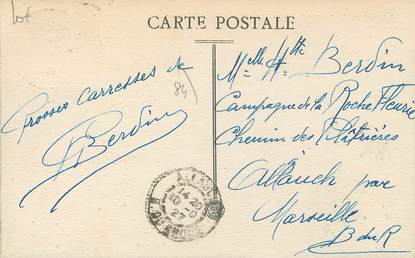 lot
CARTE POSTALE
Grosses Carresses de
Berdin
84
Melle Htte Berdin
Campagne de la Roche Fleurie
Chemin des Plâtrières
Allauch par
Marseille
B du R